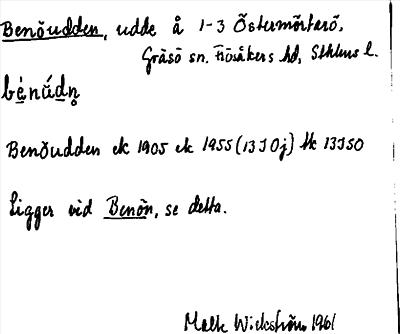 Benöudden, udde å 1-3 Östermörtarö,
Gräsö sn. Frösåkers hd, Sthlms l.
bènúdn̥
Benöudden ek 1905 ek 1955 (13J0j) tk 13J50
Ligger vid Benön, se detta.
Mats Wickström 1961